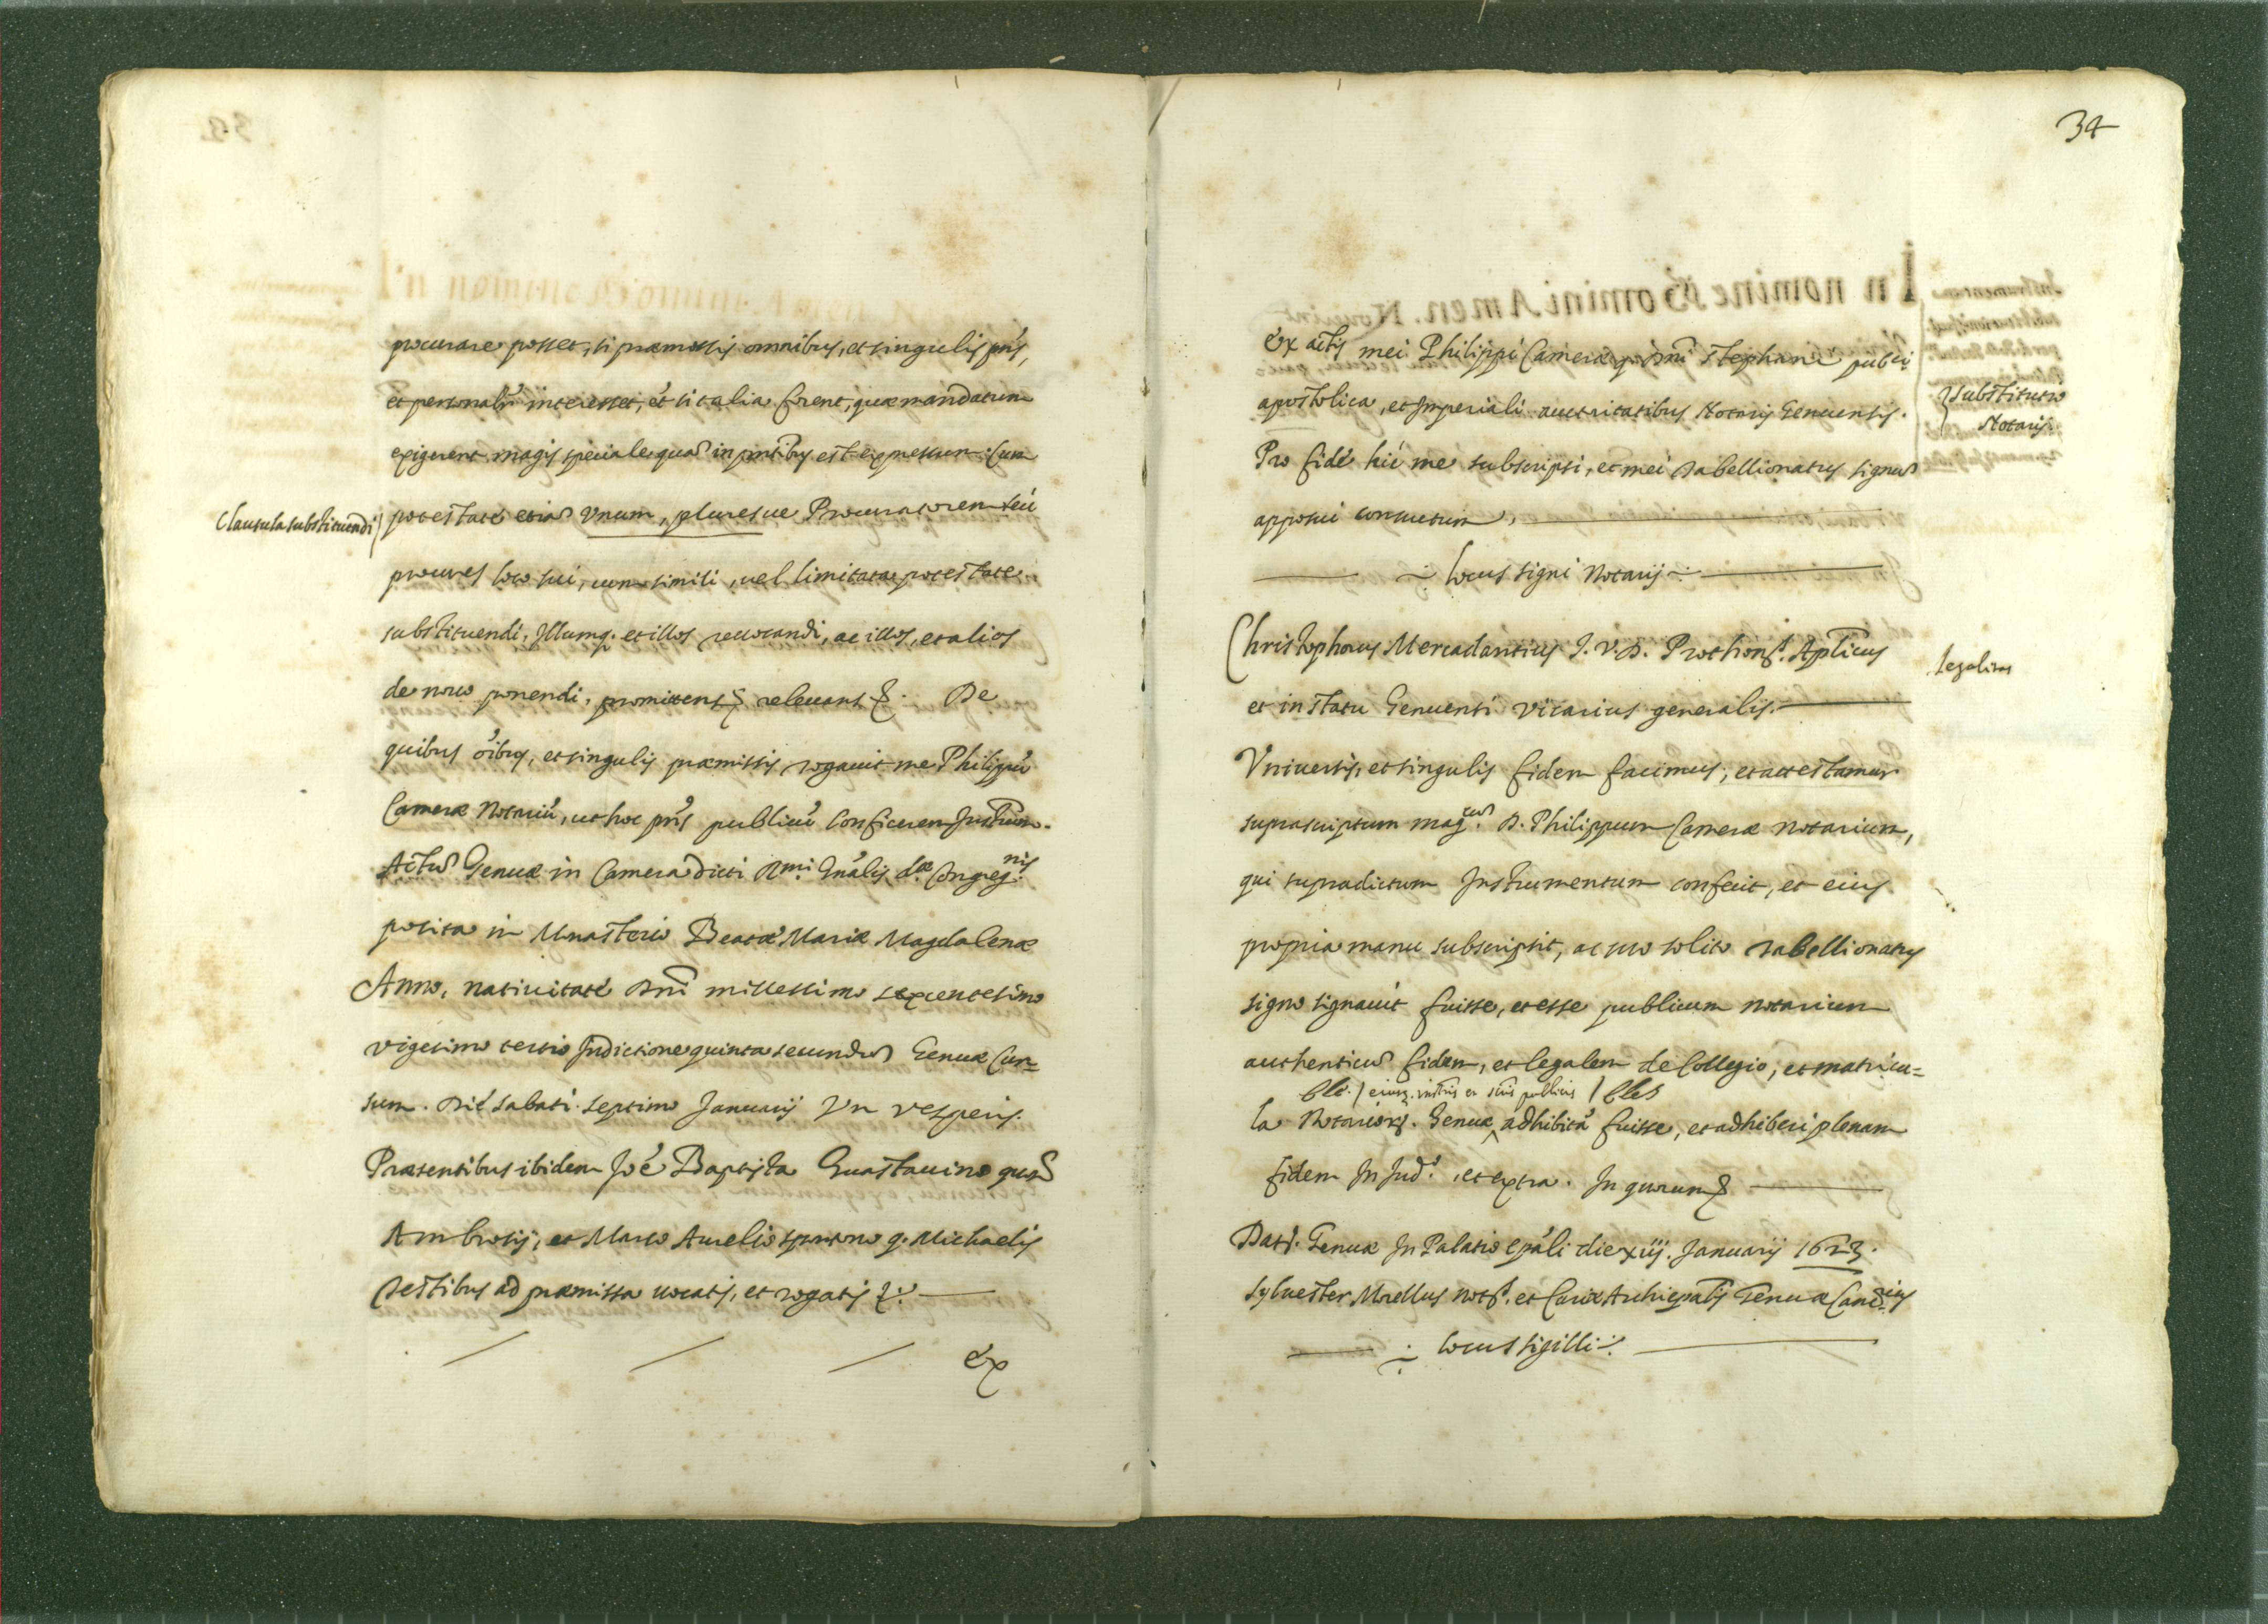 procurare posset, si præmissis omnibus, et singulis pñs,
et personalr̃ interesset, et si talia forent, quæ mandatum
exigerent magis speciale quã in pñtibus est expressum: Cum
Clausula substituendi
potestate etiã Vnum, pluresue Procuratorem seu
procures loco sui, cum simili, uel limitata potestate
substituendi, Illumq. et illos reuocandi, ac illos, et alios
de nouo ponendi, promittens & releuans &. De
quibus oĩbus, et singulis præmissis rogauit me Philippũ
Cameræ Notariũ, ut hoc pñs publicũ conficerem Instrum.
Actũ Genuæ in Camera dicti Rmi. Gñalis dæ. Congreg.nis
posita in Monasterio Beatæ Mariæ Magdalenæ
Anno, natiuitate Dñi millessimo sexcentesimo
vigesimo tertio Indictione quinta secundũ Genuæ Cur=
sum. Die sabati septimo Januarij In vesperis.
Præsentibus ibidem Joe Baptista Guastauino quõ
Ambrosij, et Marco Aurelio q. Michaelis
Testibus ad præmissa uocatis, et rogatis &.
Ex
34
Ex actis mei Philippi Cameræ q. Dñi Stephani publi
apostolica, et Imperiali auctoritatibus Notarij Genuensis.
Substitutio
Notarij
Pro fide hic me subscripsi, et mei Tabellionatus signũ
apposui consuetum,
Locus signi Notarij
Christophorus Mercadantius J. V. D. Prothons. Aplicus
Legalitas
et in statu Genuensi vicarius generalis.
Vniuersis, et singulis fidem facimus, et attestamur
suprascriptum mag.cũ D. Philippum Cameræ notarium,
qui supradictum Instrumentum confecit, et eius
propria manu subscripsit, ac suo solito Tabellionatus
signo signauit fuisse, et esse publicum notarium
authenticũ fidem, et legalem de Collegio, et matricu=
eiusq. instris et scris publicis
la Notariorũ. Genuæ adhibitã fuisse, et adhiberi plenam
fidem In Jud.o, et extra. In quorum &
Dat. Genuæ In Palatio epãli die xiij. Januarij 1623.
Syluester Morellus nots. et Curiæ Archiepalis Genuæ Canc.rius
Locus sigilli